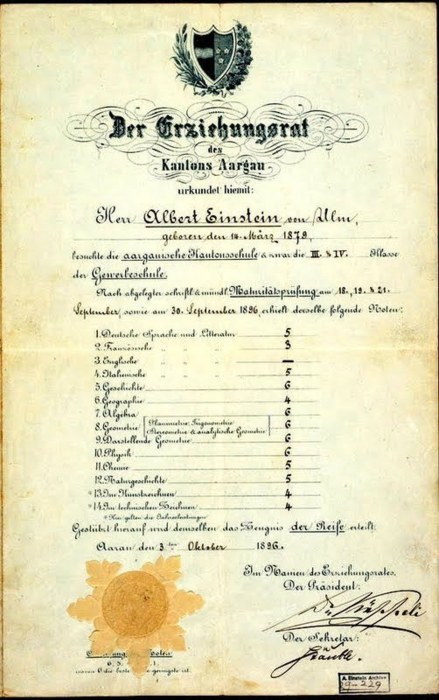 Der Erziehungsrat
des
Kantons Aargau
urkundet hiemit:
Herr Albert Einstein von Ulm,
geboren den 14. März 1879,
besuchte die aargauische Kantonsschule & zwar die III. & IV. Klasse
der Gewerbeschule.
Nach abgelegter schriftl. & mündl. Maturitätsprüfung am 18., 19. & 21.
September, sowie am 30. September 1896, erhielt derselbe folgende Noten:
1. Deutsche Sprache und Litteratur 5
2. Französische " " " 3
3. Englische " " " —
4. Italienische " " " 5
5. Geschichte 6
6. Geographie 4
7. Algebra 6
8. Geometrie (Planimetrie, Trigonometrie, Stereometrie & analytische Geometrie) 6
9. Darstellende Geometrie 6
10. Physik 6
11. Chemie 5
12. Naturgeschichte 5
*13. Im Kunstzeichnen 4
*14. Im technischen Zeichnen 4
* Hier gelten die Jahresleistungen.
Gestützt hierauf wird demselben das Zeugnis der Reife erteilt.
Aarau den 3ten Oktober 1896.
Im Namen des Erziehungsrates,
Der Präsident:
Der Sekretär:
Noten
6. 5. 1.
wovon 6 die beste geringste ist.
A. Einstein Archive
29-229